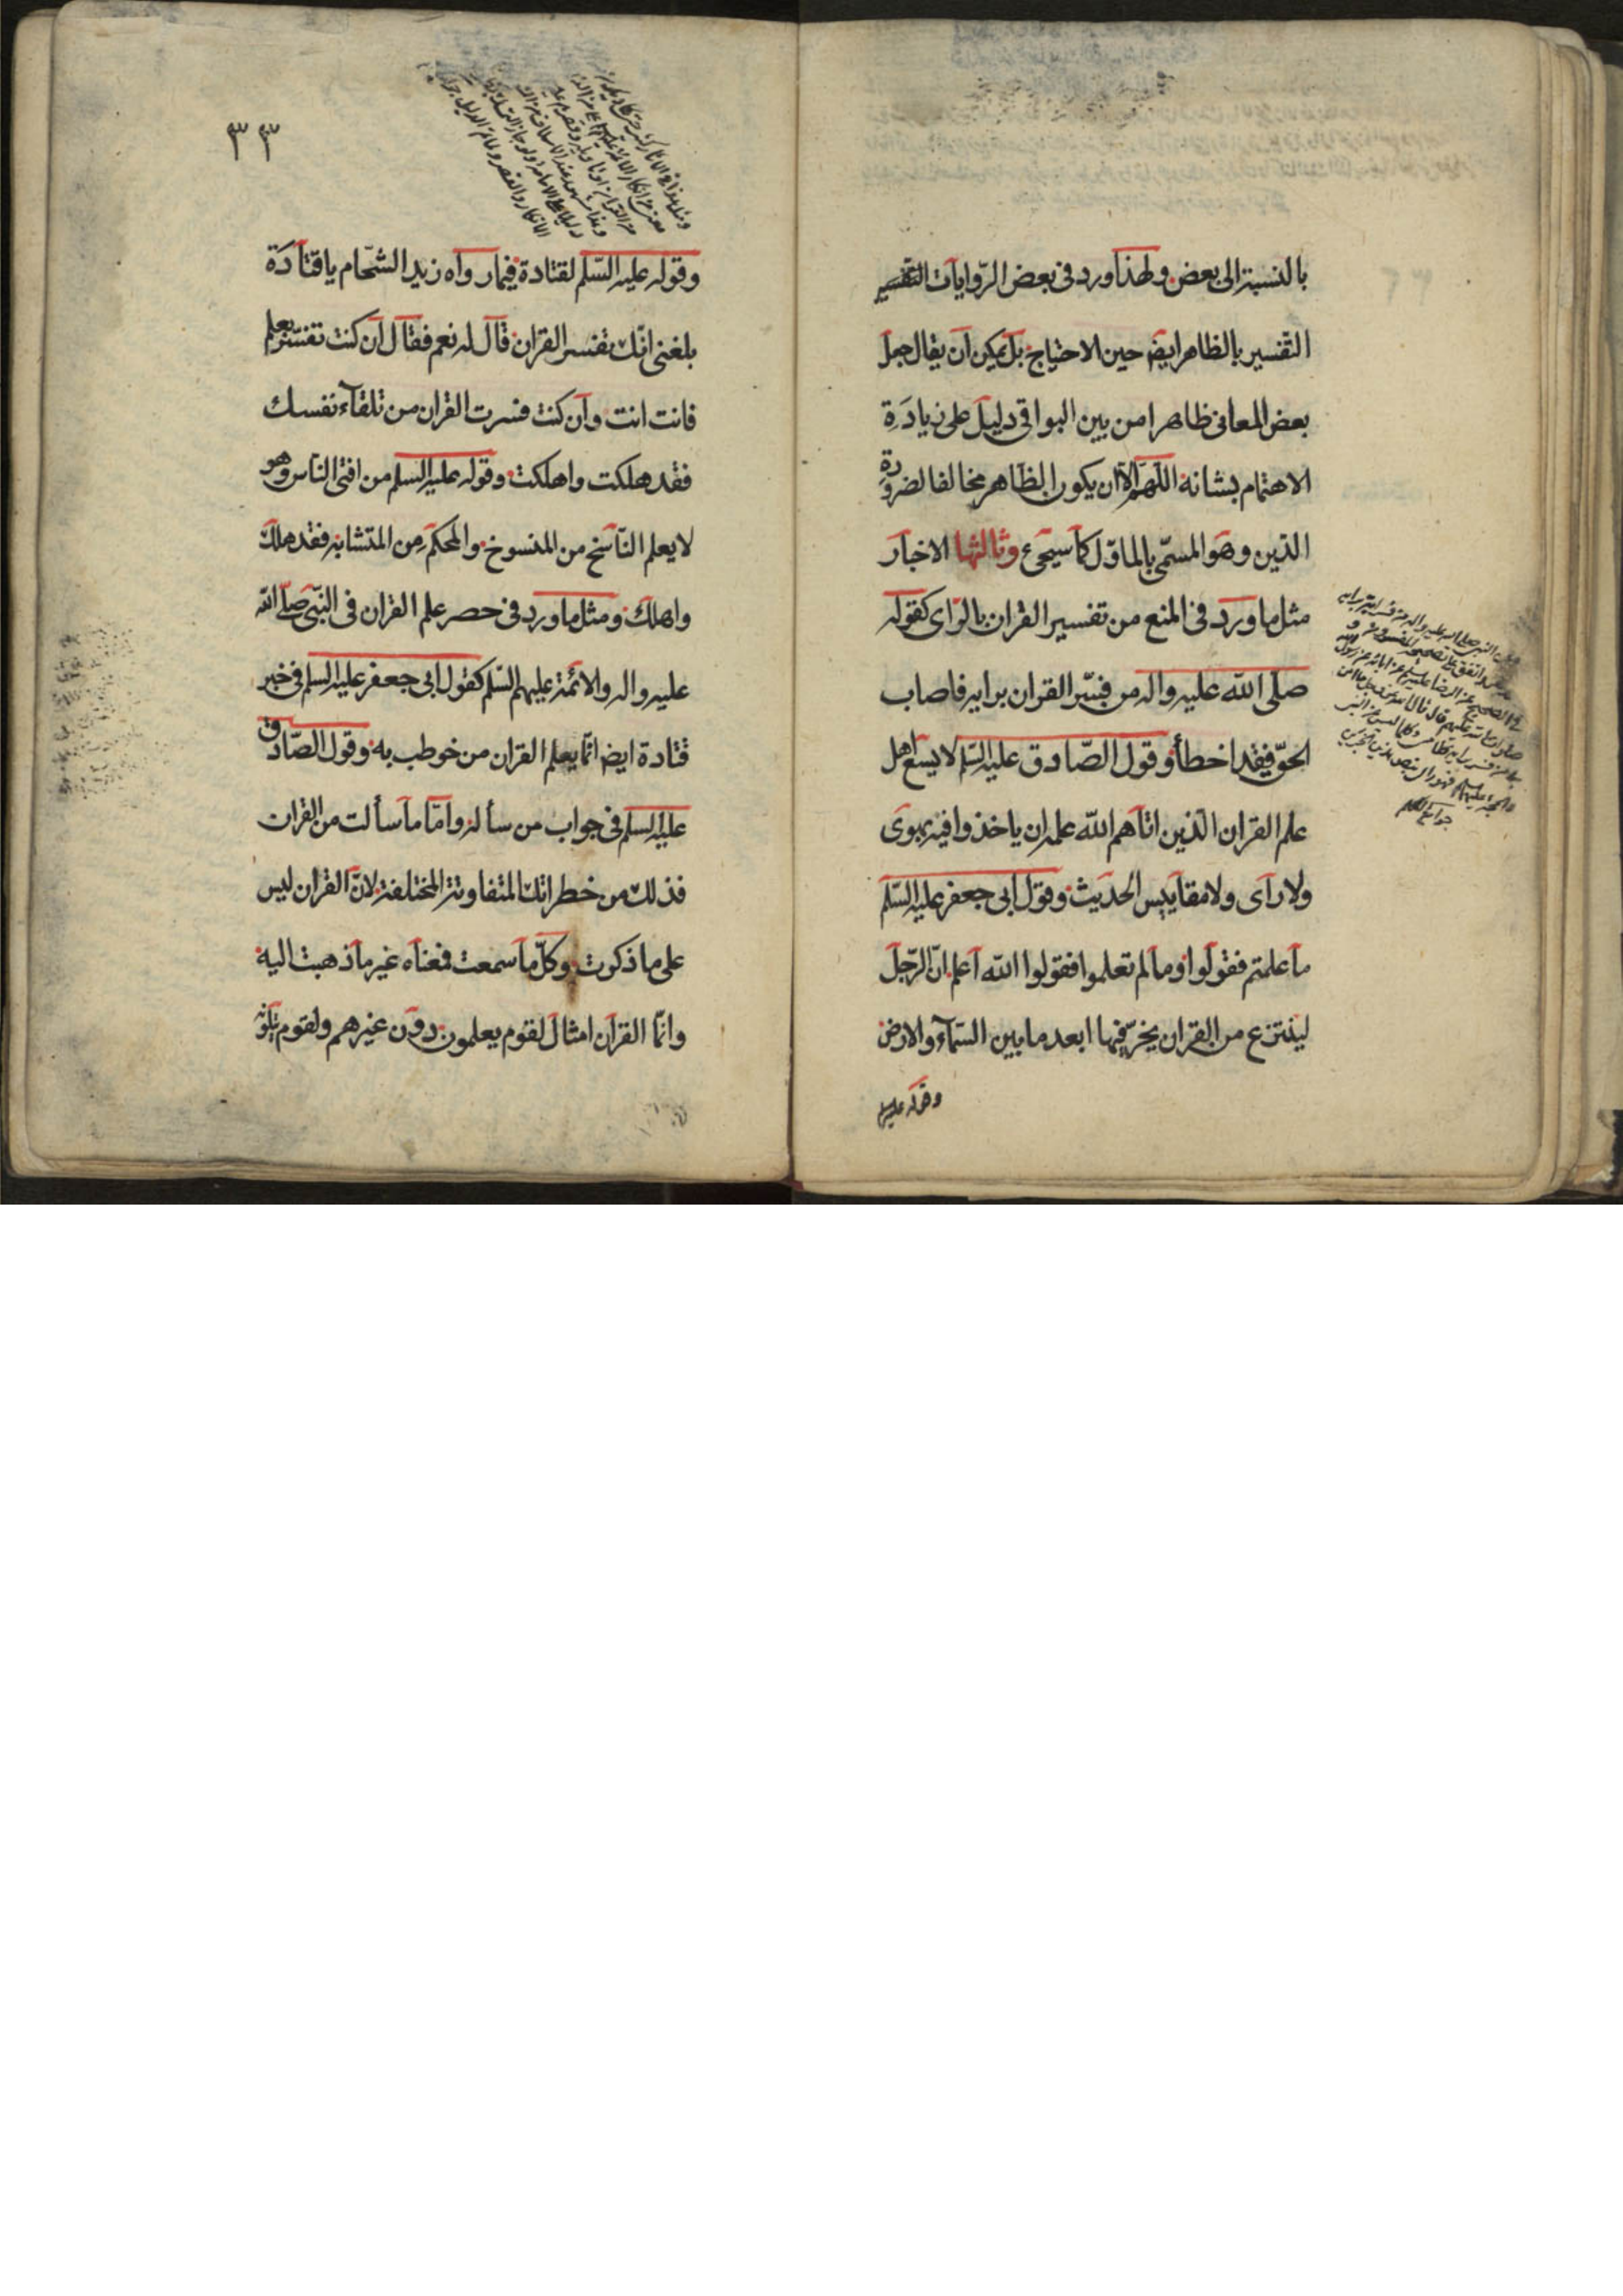 بالنسبة الى بعض ولهذا ورد فى بعض الروايات التفسير
التفسير بالظاهر ايض حين الاحتياج بل يمكن ان يقال جعل
بعض المعانى ظاهرا من بين البواقى دليل على زيادة
الاهتمام بشانه اللهم الا ان يكون الظاهر مخالفا لضرورة
الدين وهو المسمى بالماول كما سيجىء وثالثها الاخبار
مثل ما ورد فى المنع من تفسير القران بالراى كقوله
صلى الله عليه واله من فسّر القران برايه فاصاب
الحق فقد اخطأ وقول الصّادق عليه السّلم لا يسع اهل
علم القران الذين اتاهم الله علمه ان ياخذوا فيه بهوى
ولا راى ولا مقاييس الحديث وقول ابى جعفر عليه السّلم
ما علمتم فقولوا وما لم تعلموا فقولوا الله اعلم انّ الرّجل
لينتزع من القران يخرّ فيها ابعد ما بين السّمآء والارض
وقوله عليه
جوامع الكلم
٣٣
وقوله عليه السّلم لقتادة فيما رواه زيد الشحّام يا قتادة
بلغنى انّك تفسر القران قال له نعم فقال ان كنت تفسّر بعلم
فانت انت وان كنت فسرت القران من تلقآء نفسك
فقد هلكت واهلكت وقوله عليه السلم من افتى الناس وهو
لا يعلم النّاسخ من المنسوخ والمحكم من المتشابه فقد هلك
واهلك ومثل ما ورد فى حصر علم القران فى النّبىّ صلّى الله
عليه واله والائمّة عليهم السّلم كقول ابى جعفر عليه السلم فى خبر
قتادة ايض انّما يعلم القران من خوطب به وقول الصّادق
عليه السلم فى جواب من سأله وامّا ما سألت من القران
فذلك من خطراتك المتفاوتة المختلفة لانّ القران ليس
على ما ذكرت وكلّ ما سمعت فمعناه غير ما ذهبت اليه
وانّما القران امثال لقوم يعلمون دون غيرهم ولقوم يتلونه